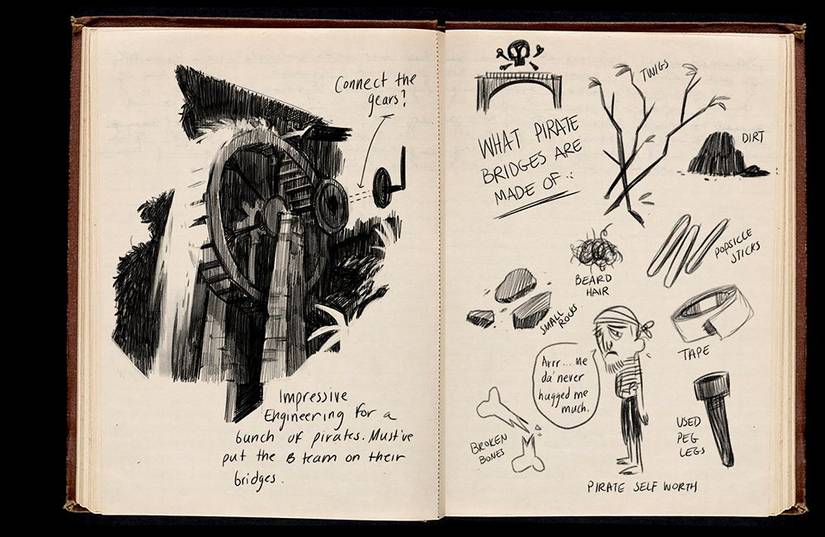 Connect the
gears?
Impressive
Engineering for a
bunch of pirates. Must've
put the B team on their
bridges.
WHAT PIRATE
BRIDGES ARE
MADE OF:
TWIGS
DIRT
BEARD
HAIR
POPSICLE
STICKS
SMALL
ROCKS
TAPE
Arrr... me
da' never
hugged me
much.
BROKEN
BONES
USED
PEG
LEGS
PIRATE SELF WORTH